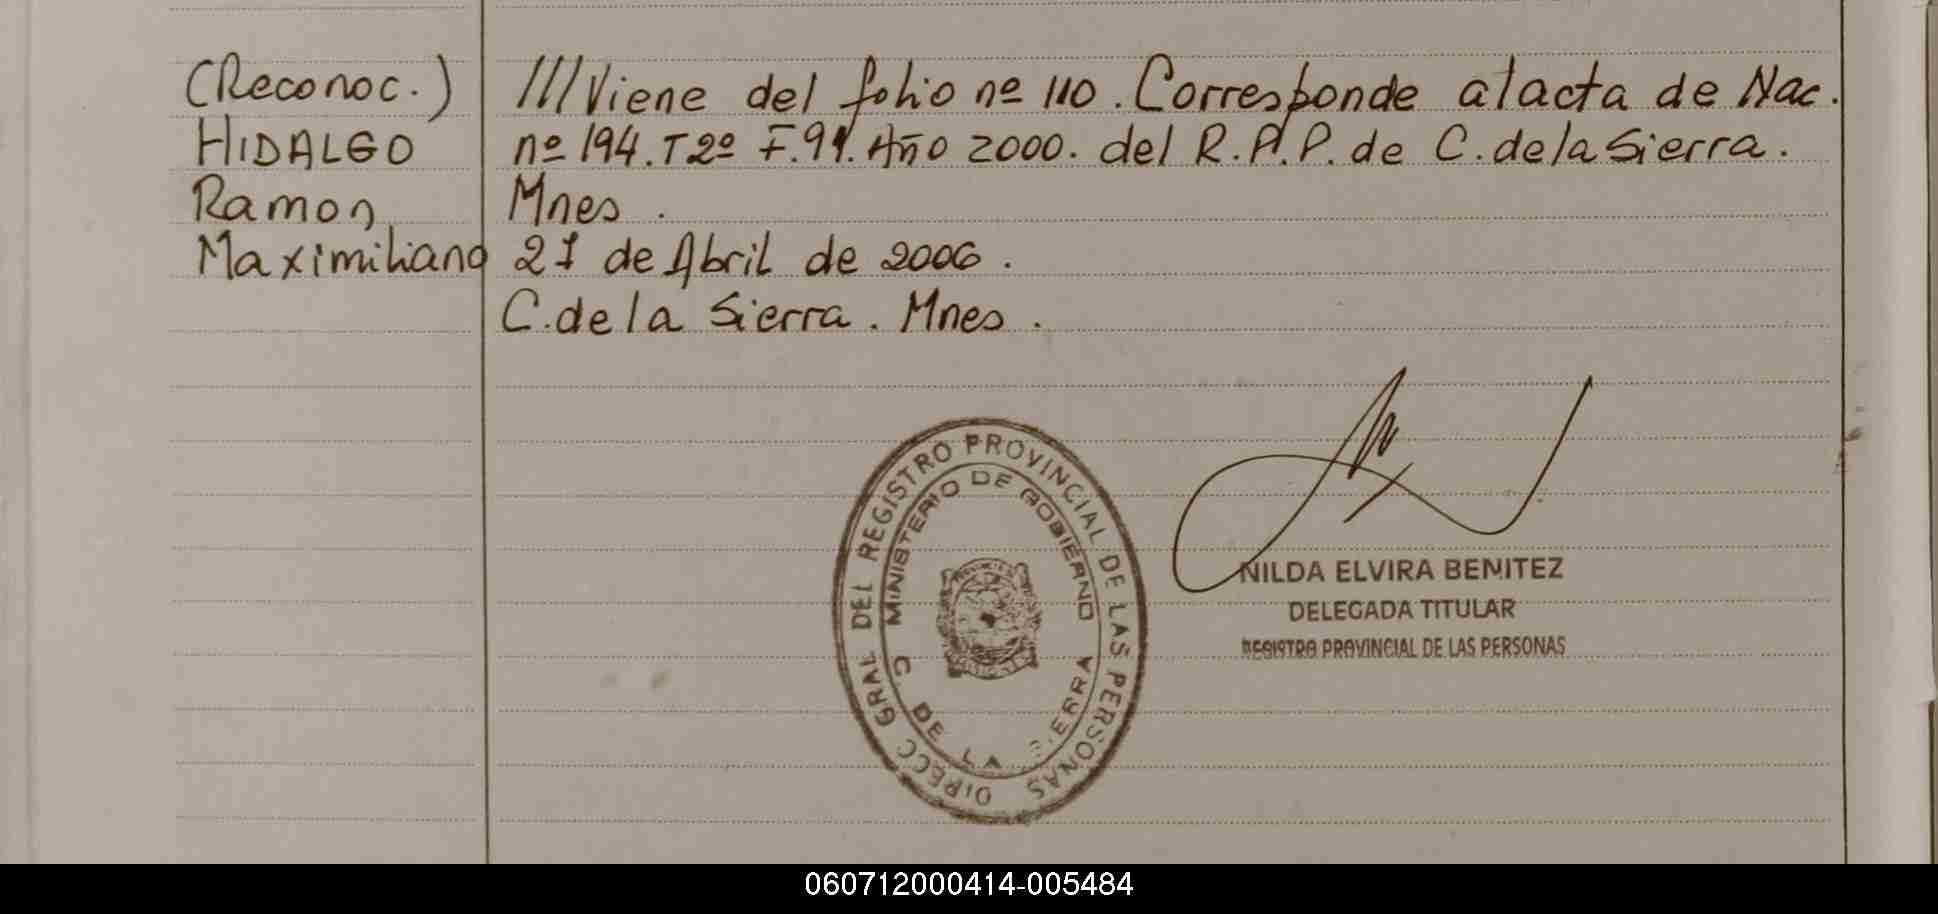 (Reconoc.) ///Viene del folio nº 110. Corresponde al acta de Nac.
HIDALGO nº 194. T 2º F. 91. Año 2000. del R.P.P. de C. de la Sierra.
Ramon Mnes.
Maximiliano 21 de Abril de 2006.
C. de la Sierra. Mnes.
DIRECC GRAL DEL REGISTRO PROVINCIAL DE LAS PERSONAS
MINISTERIO DE GOBIERNO
C DE LA SIERRA
NILDA ELVIRA BENITEZ
DELEGADA TITULAR
REGISTRO PROVINCIAL DE LAS PERSONAS
060712000414-005484